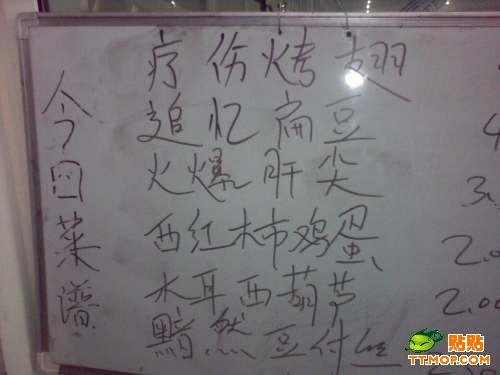 今日菜谱
疗伤烤翅
追忆扁豆 4
火爆肝尖 3.
西红柿鸡蛋 2.0
木耳西葫芦 2.00
黯然豆付
贴贴
TT.MOP.COM